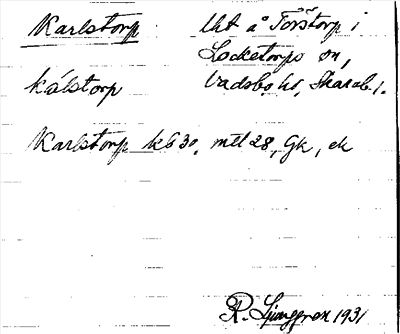 Karlstorp Uht å Torstorp i
Locketorps sn,
kálstorp Vadsbo hd, Skarab. l.
Karlstorp kb 30, mtl 28, Gk, ek
R. Ljunggren 1931